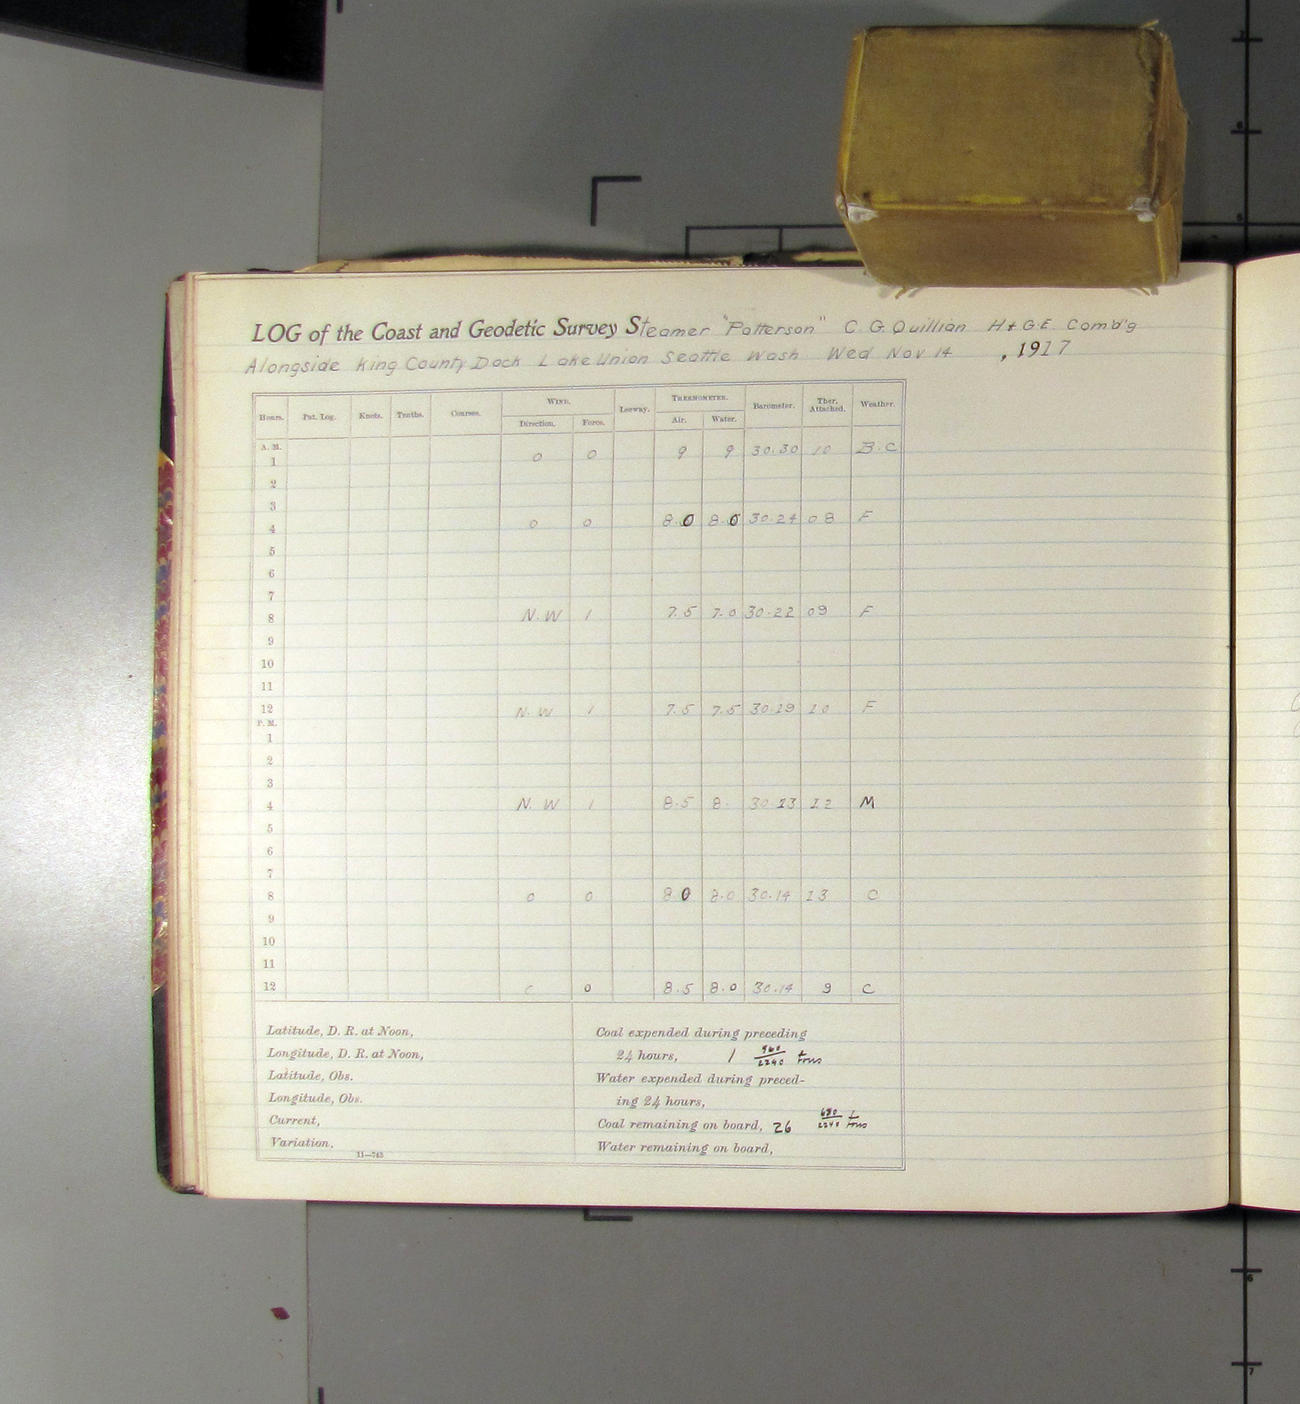 LOG of the Coast and Geodetic Survey Steamer "Patterson" C. G. Quillian H & G.E. Comd'g
Alongside King County Dock Lake Union Seattle Wash Wed Nov 14 , 1917
Hours. Pat. Log. Knots. Tenths. Courses. WIND. Leeway. THERMOMETER. Barometer. Ther. Attached. Weather.
Direction. Force. Air. Water.
A. M.
1 0 0 9 9 30.30 10 B.C
2
3
4 0 0 8.0 8.0 30.24 08 F
5
6
7
8 N.W 1 7.5 7.0 30.22 09 F
9
10
11
12 N.W 1 7.5 7.5 30.19 10 F
P. M.
1
2
3
4 N.W 1 8.5 8. 30.13 12 M
5
6
7
8 0 0 8.0 8.0 30.14 13 C
9
10
11
12 C 0 8.5 8.0 30.14 9 C
Latitude, D. R. at Noon,
Longitude, D. R. at Noon,
Latitude, Obs.
Longitude, Obs.
Current,
Variation,
11—743
Coal expended during preceding
24 hours, 1 960/2240 tons
Water expended during preced-
ing 24 hours,
Coal remaining on board, 26 /2240 tons
Water remaining on board,